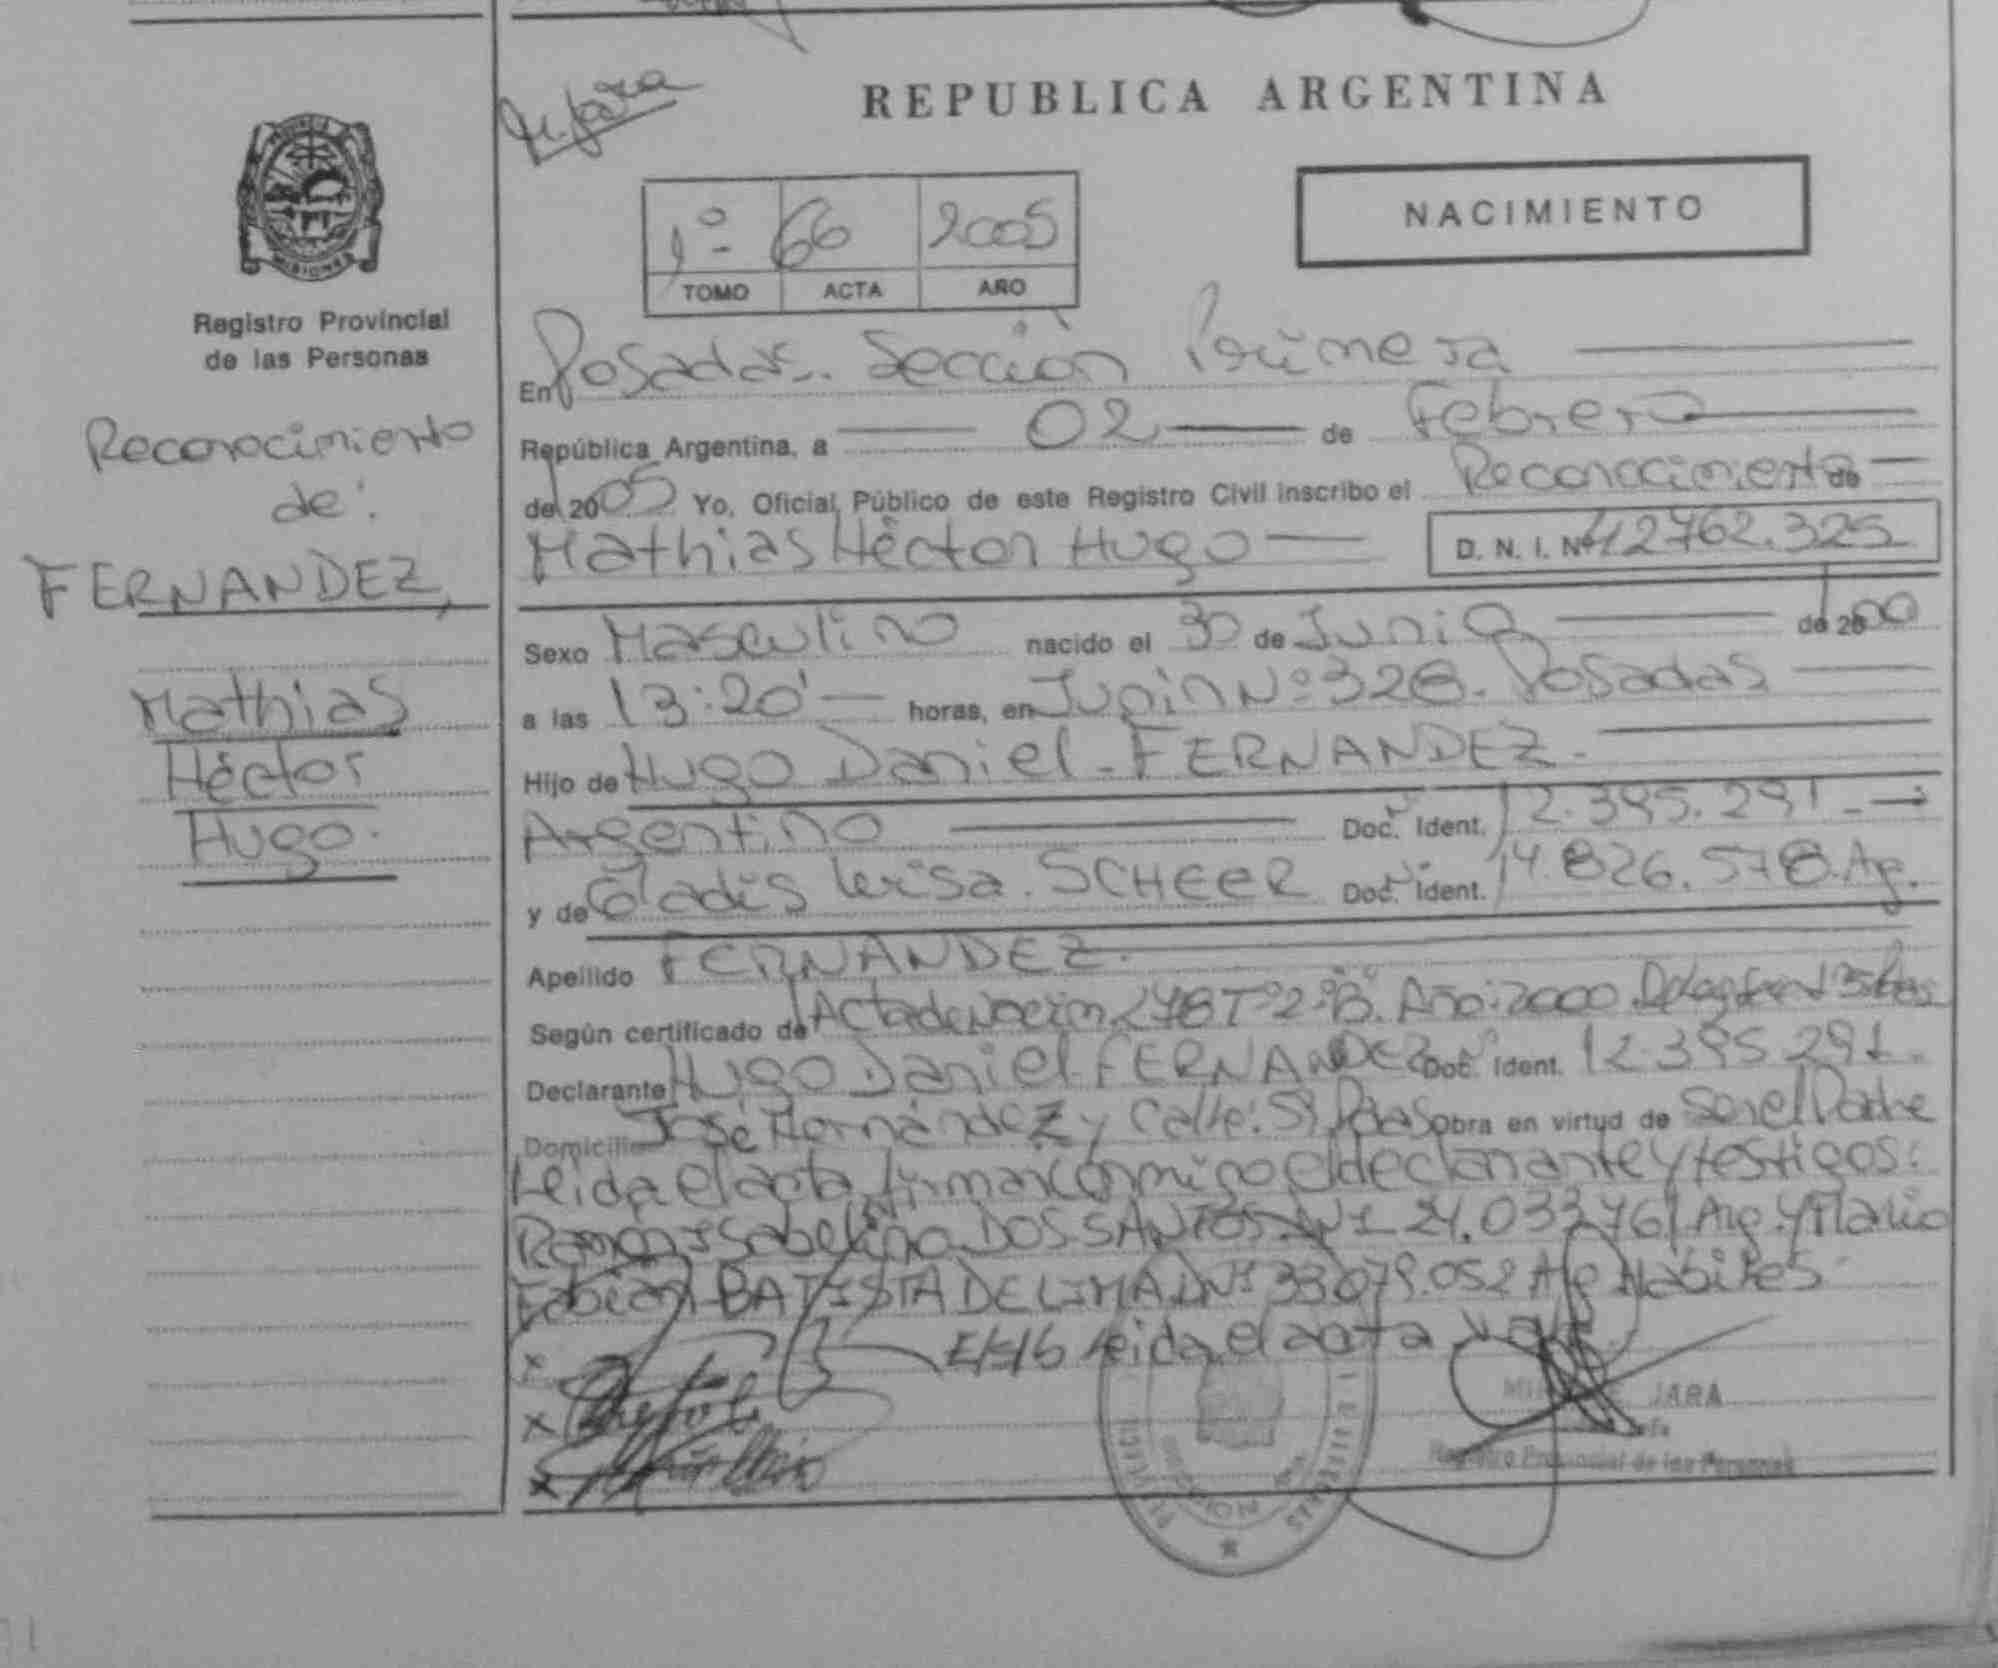 REPUBLICA ARGENTINA
NACIMIENTO
1º 66 2005
TOMO ACTA AÑO
MISIONES
Registro Provincial
de las Personas
Reconocimiento
de:
FERNANDEZ,
Mathias
Héctor
Hugo.
En Posadas. Sección Primera
República Argentina, a 02 de Febrero
del 2005 Yo, Oficial Público de este Registro Civil inscribo el Reconocimiento de
Mathias Héctor Hugo D. N. I. Nº 42762.325
Sexo Masculino nacido el 30 de Junio de 2000
a las 13:20' horas, en Junin Nº 328. Posadas
Hijo de Hugo Daniel FERNANDEZ.
Argentino Doc. Ident. 12.395.291.
y de Gladis Luisa SCHEER Doc. Ident. 14.826.578. Arg.
Apellido FERNANDEZ.
Según certificado de Acta de Nacim 278 Tº 2º B. Año: 2000
Declarante Hugo Daniel FERNANDEZ Doc. Ident. 12.395.291.
Domicilio José Hernández y Calle: 59 Pdas obra en virtud de Ser el Padre
Leida el acta firman conmigo el declarante y testigos:
Ramón Isabelino DOS SANTOS DNI 24.033.761 Arg. y Mario
Fabian BATISTA DE LIMA DNI 33.079.052 Arg Hábiles
Leida el acta
JARA
Registro Provincial de las Personas